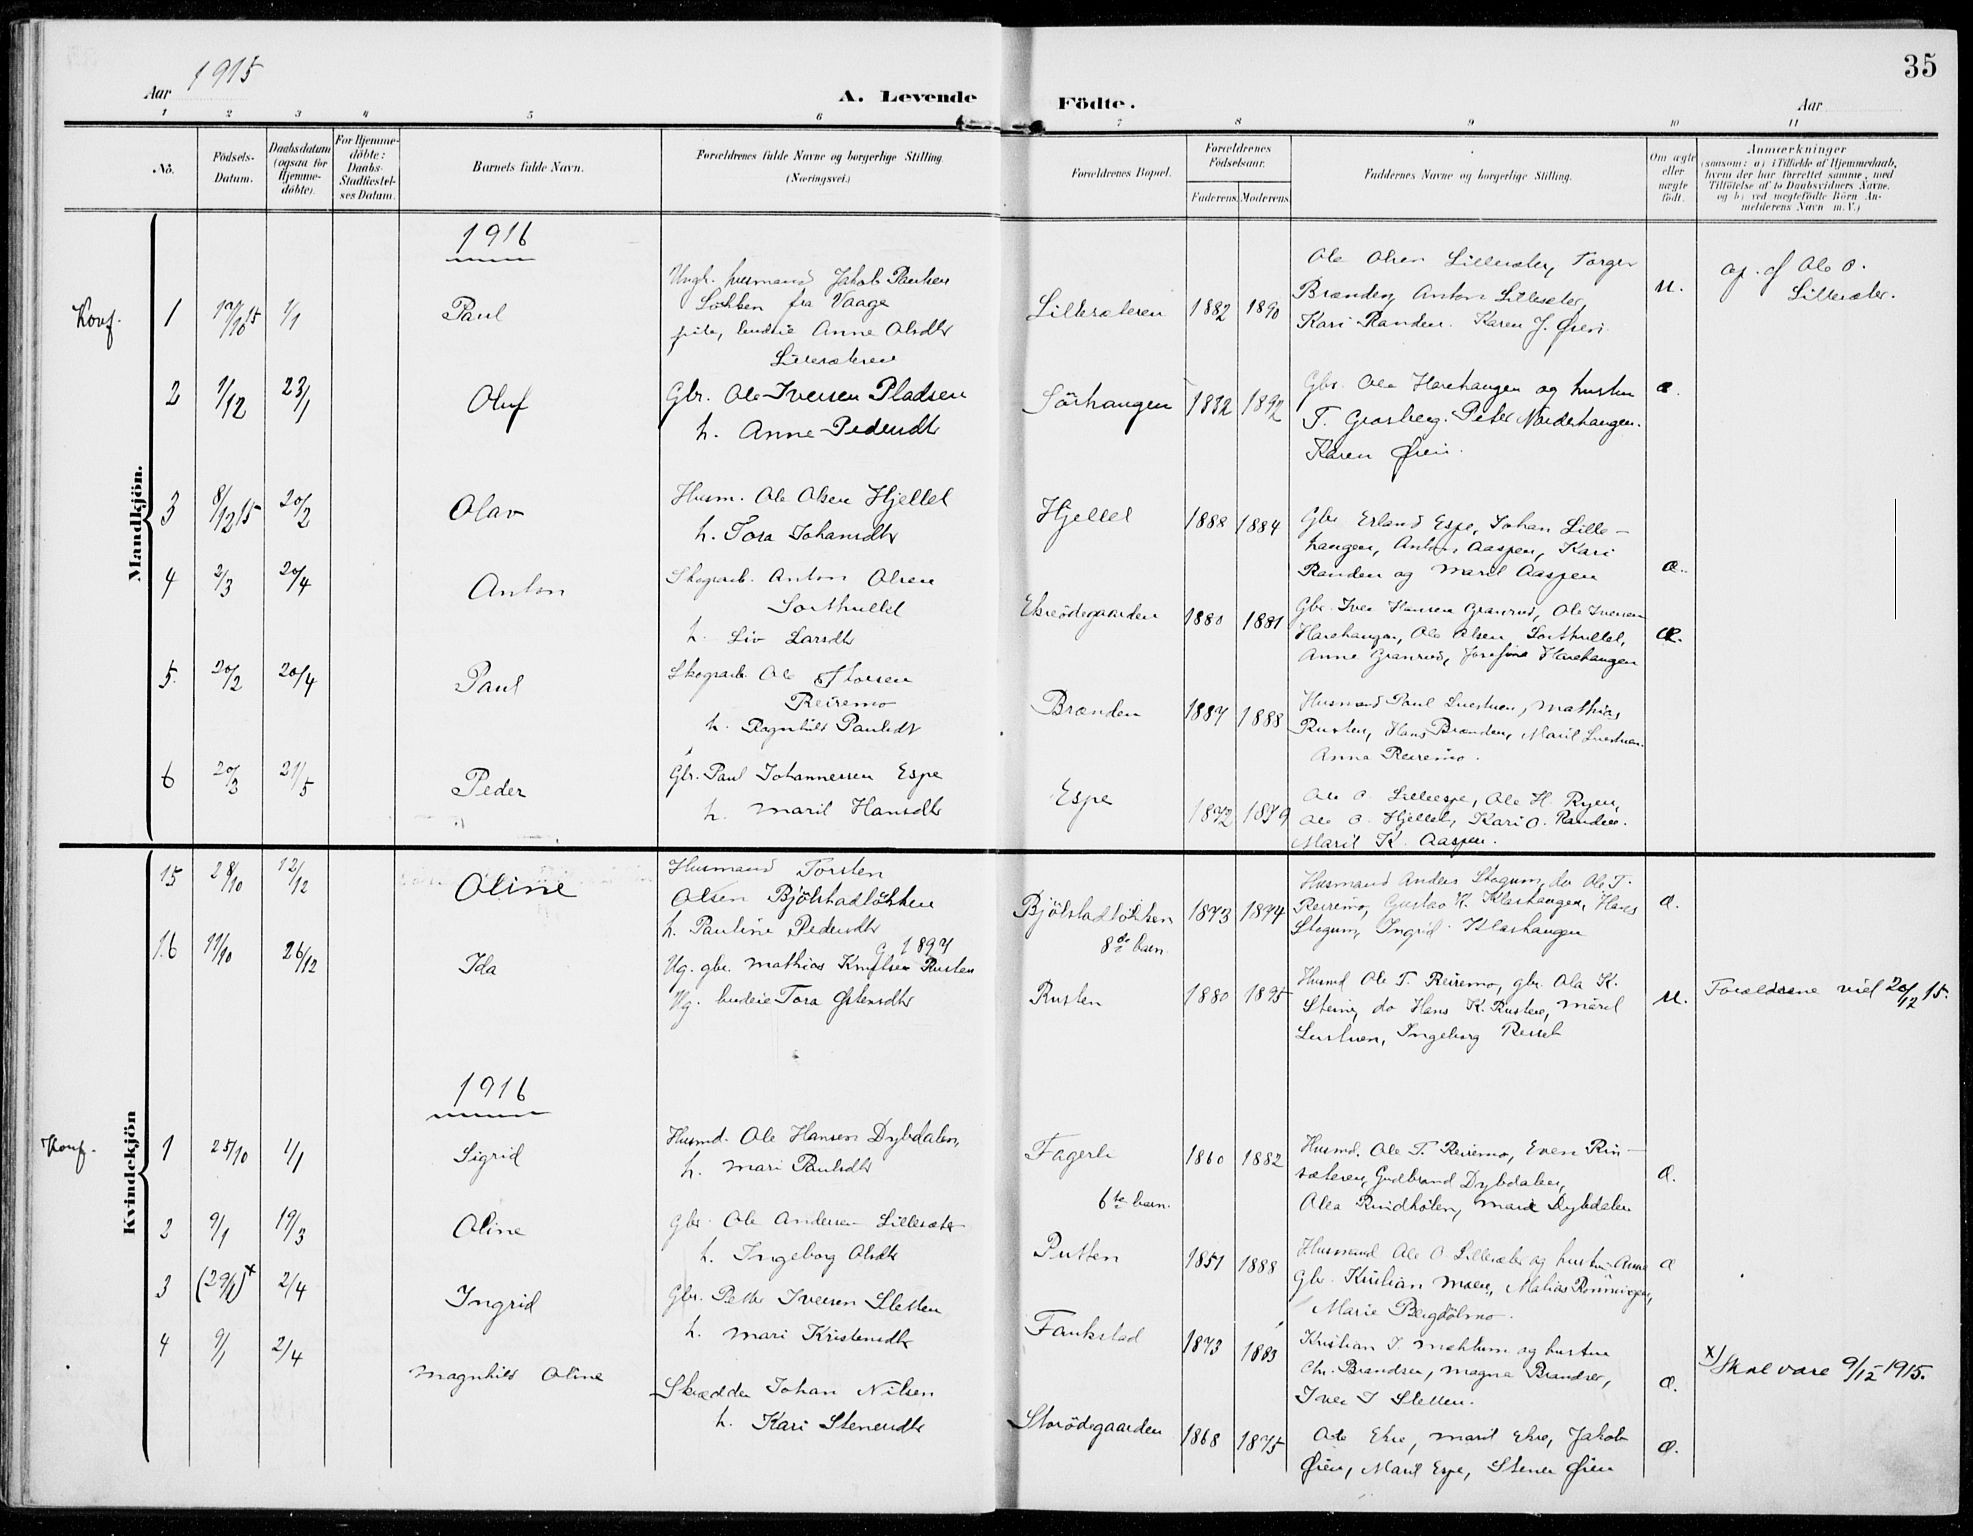 Aar 1915
A. Levende
Födte.
Aar
35
1 2 3 4 5 6 7 8 9 10 11
No.
Födsels-
Datum.
Daabsdatum
(ogsaa for
Hjemme-
döbte).
For Hjemme-
döbte:
Daabs-
Stadfæstel-
ses Datum.
Barnets fulde Navn.
Forældrenes fulde Navne og borgerlige Stilling.
(Næringsvei.)
Forældrenes Bopæl.
Forældrenes
Födselsaar.
Faderens. Moderens.
Faddernes Navne og borgerlige Stilling.
Om ægte
eller
uægte
födt.
Anmærkninger
(saasom: a) i Tilfælde af Hjemmedaab,
hvem der har forrettet samme, med
Tilföielse af to Daabsvidners Navne.
og b) ved uægtefödte Börn An-
melderens Navn m. V.)
Mandkjön.
1916
Konf. 1 1/1 Paul
Ungk. husmand Jakob Paulsen
Løkken fra Vaage
pike, budeie Anne Olsdtr
Lillesæteren
Lillesæteren 1882 1890
Ole Olsen Lillesæter, Torger
Brænden, Anton Lillesæter,
Kari Randen. Karen J. Øien
U.
op. af Ole O.
Lillesæter.
2 1/12 23/1 Oluf
Gbr. Ole Iversen Pladsen
h. Anne Pedersdtr
Sörhaugen 1892
Gbr. Ole Harehaugen og hustru
T. Grosberg. Peter Nordenhaugen.
Karen Øien.
æ.
3 8/12 15 20/2 Olav
Husm. Ole Olsen Hjellel
h. Tora Johansdtr
Hjellel 1888 1884
Gbr Erland Espe, Johan Lille-
haugen, Anton Aaspen, Kari
Randen og Marit Aaspen
æ.
4 2/3 20/4 Anton
Skogarb. Anton Olsen
Sorthullel
h. Liv Larsdtr
Ekreödegaarden 1880 1881
Gbr. Iver Hansen Granrud, Ole Iversen
Harehaugen, Ole Olsen, Sorthullel,
Anne Granrud, Josefine Harehaugen
æ.
5. 20/2 20/4 Paul
Skogarb. Ole Storsen
Reiremo
h. Ragnhild Paulsdt
Brænden 1887 1888
Husmand Paul Lustuen, Mathias
Rusten, Hans Brænden, Marit Lustuen.
Anna Reiremo.
6 20/3 21/5 Peder
Gbr. Paul Johannessen Espe
h. Marit Hansdtr
Espe 1872 1879
Ole O. Lilleespe, Ole H. Ryen,
Ole O. Hjellel, Kari O. Randen.
Marit K. Aaspen.
Kvindekjön
15 28/10 12/12 Oline
Husmand Torsten
Olsen Bjölstadlökken
h. Pauline Pedersdtr
Bjölstadlökken 1873 1874
8de barn.
Husmand Anders Stogum, do Ole T.
Reiremo, Gustav K. Klashaugen, Hans
Stogum, Ingrid Klashaugen
æ.
16 11/10 26/12 Ida
G 1897
Ug. gbr. Mathias Knutsen Rusten
Ug. budeie Tora Østensdtr
Rusten 1880 1895
Husmd Ole T. Reiremo, gbr. Ola K.
Steine, do Hans K. Rusten, Marit
Lustuen, Ingeborg
U.
Forældrene viet 20/12 15.
1916
Konf. 1 25/10 1/1 Sigrid
Husmd. Ole Hansen Dybdalen,
h. Mari Paulsdtr
Fagerli 1860 1882
6te barn.
Husmd. Ole T. Reiremo, Even Rin-
sæteren, Gudbrand Dybdalen,
Olea Rindhölen, Mari Dybdalen
æ.
2 9/1 19/3 Oline
Gbr. Ole Andersen Lillesæter
h. Ingeborg Olsdtr
Putten 1851 1888
Husmand Ole O. Lillesæter og hustru Anne
Gbr. Kristian Moen, Matias Rönningen,
Marie Bergdölmo.
æ
3 2/4 Ingrid
Gbr. Petter Iversen Sletten
h. Mari Kristensdtr
Faukstad 1873 1883
Kristian I. Mæhlum og hustru
Chr. Brandser, Magna Brandser,
Iver I Sletten.
æ.
x) Skal være 9/12 1915.
4 9/1 2/4 Magnhild Oline
Skrædder Johan Nilsen
h. Kari Stenersdtr
Storödegaarden 1868 1875
Ole Ekre, Marit Ekre, Jakob
Øien, Marit Espe, Stener Øien
æ.